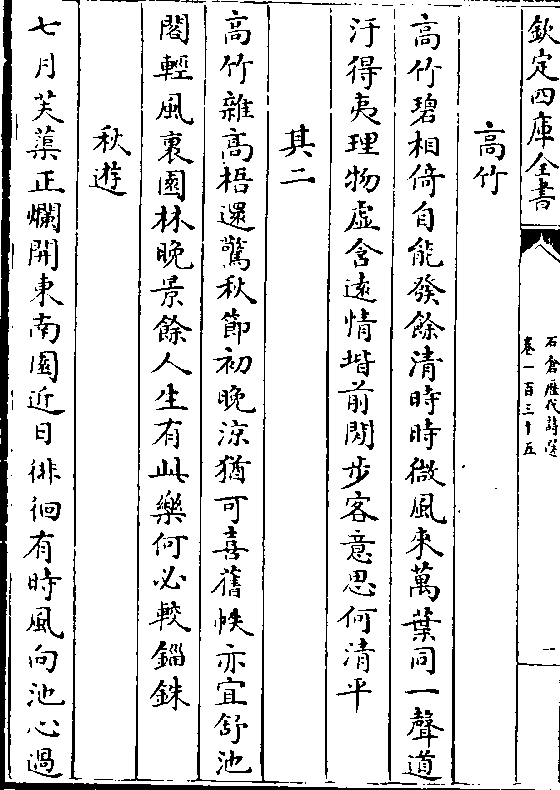 欽定四庫全書
石倉歷代詩選
卷一百三十五
二
高竹
高竹碧相倚自能發餘清時時微風來萬葉同一聲道
汙得夷理物虛含遠情堦前閒步客意思何清平
其二
高竹雜高梧還驚秋節初晚涼猶可喜舊帙亦宜舒池
閣輕風裏園林晚景餘人生有此樂何必較錙銖
秋遊
七月芙蕖正爛開東南園近日徘徊有時風向池心過